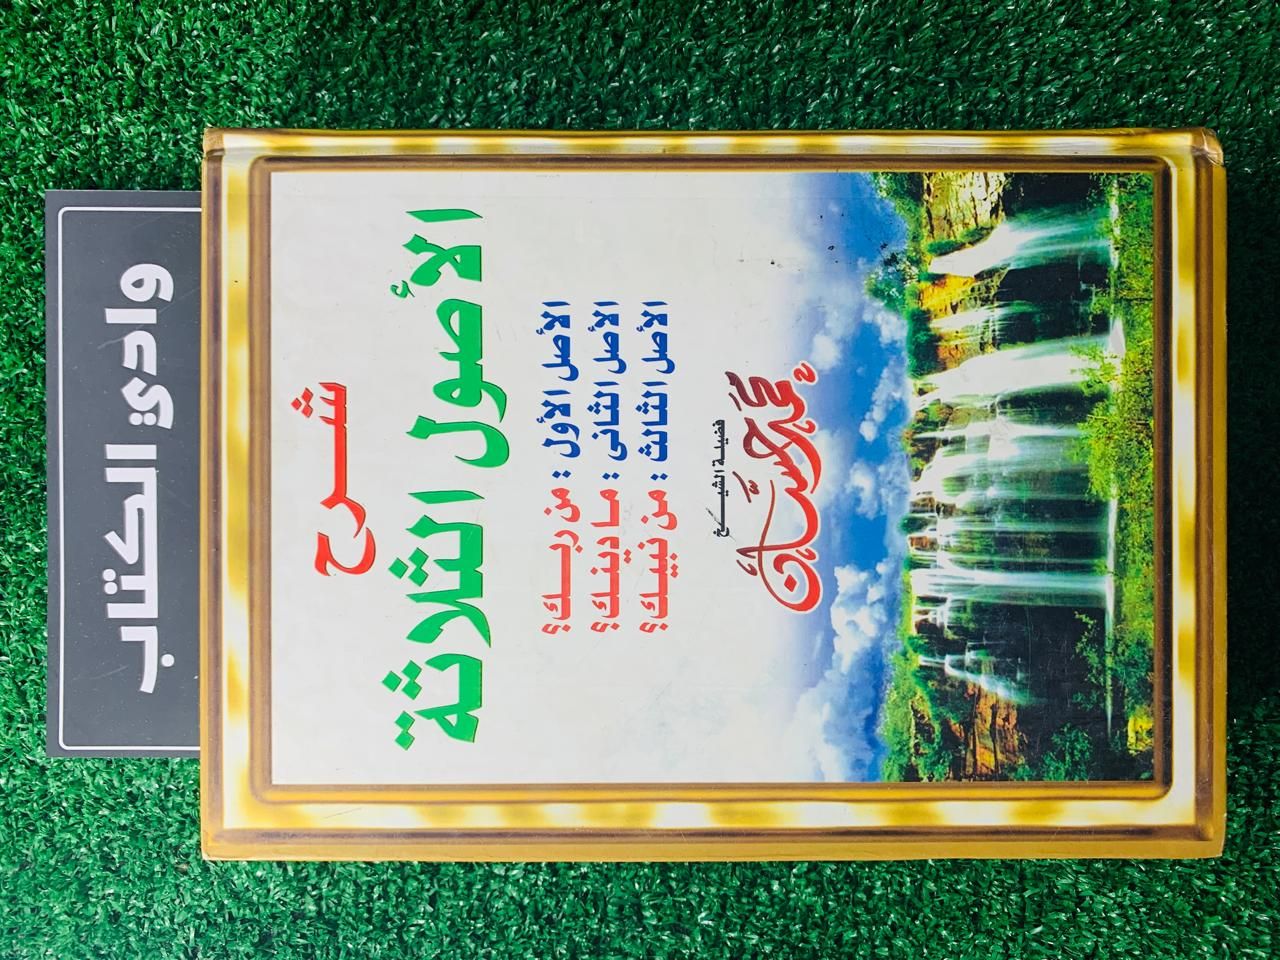 وادي الكتاب
شرح
الأصول الثلاثة
الأصل الأول : من ربك؟
الأصل الثاني : ما دينك؟
الأصل الثالث : من نبيك؟
فضيلة الشيخ
محمد حسان